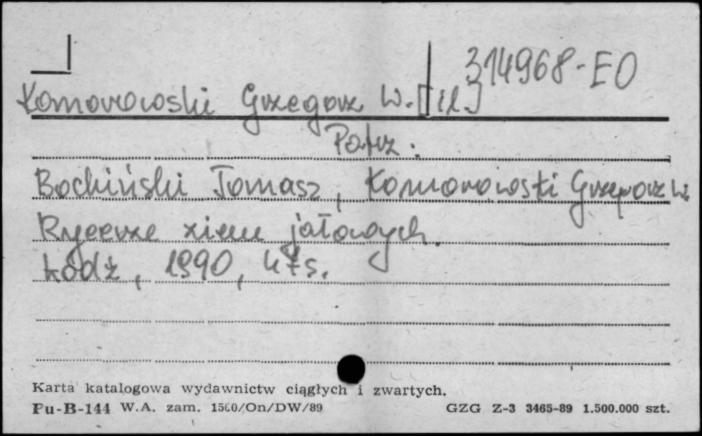 314968-EO
Komorowski Grzegorz W. [il.]
Patrz:
Bochiński Tomasz, Komorowski Grzegorz W.
Rycerze ziem jałowych.
Łódź, 1990, 47 s.
Karta katalogowa wydawnictw ciągłych i zwartych.
Pu-B-144 W.A. zam. 1500/On/DW/89 GZG Z-3 3465-89 1.500.000 szt.